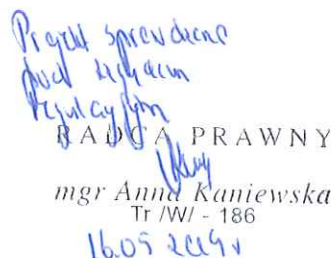 Projekt sprawdzono
pod względem
redakcyjnym
RADCA PRAWNY
mgr Anna Kaniewska
Tr /W/ - 186
16.05 2019r